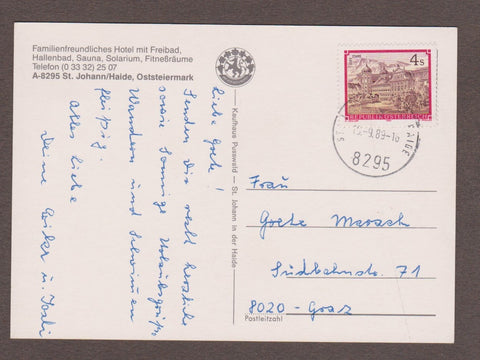 Familienfreundliches Hotel mit Freibad,
Hallenbad, Sauna, Solarium, Fitneßräume
Telefon (0 33 32) 25 07
A-8295 St. Johann/Haide, Oststeiermark
Liebe Grete!
Senden dir recht herzliche
sowie sonnige Urlaubsgrüße
Wandern und schwimmen
fleißig.
Alles Liebe
Deine
Kaufhaus Pusswald — St. Johann in der Haide
4s
REPUBLIK ÖSTERREICH
-9.89-
8295
Frau
Grete
Südbahnstr. 71
8020-Graz
Postleitzahl